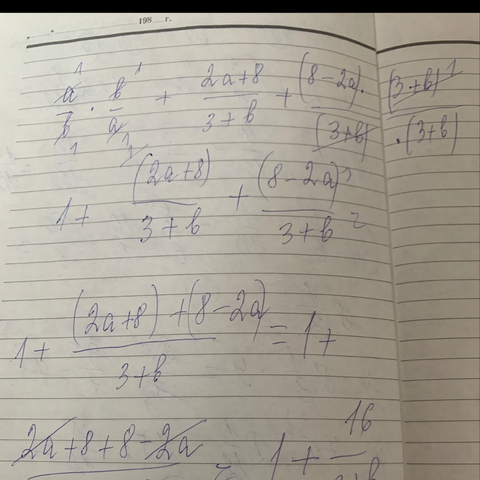 198 г.
a/b · b/a + (2a+8)/(3+b) + (8-2a)·(3+b)/(3+b)·(3+b)
1 + (2a+8)/(3+b) + (8-2a)/(3+b)
1 + ((2a+8)+(8-2a))/(3+b) = 1+
2a+8+8-2a = 1 + 16/(3+b)